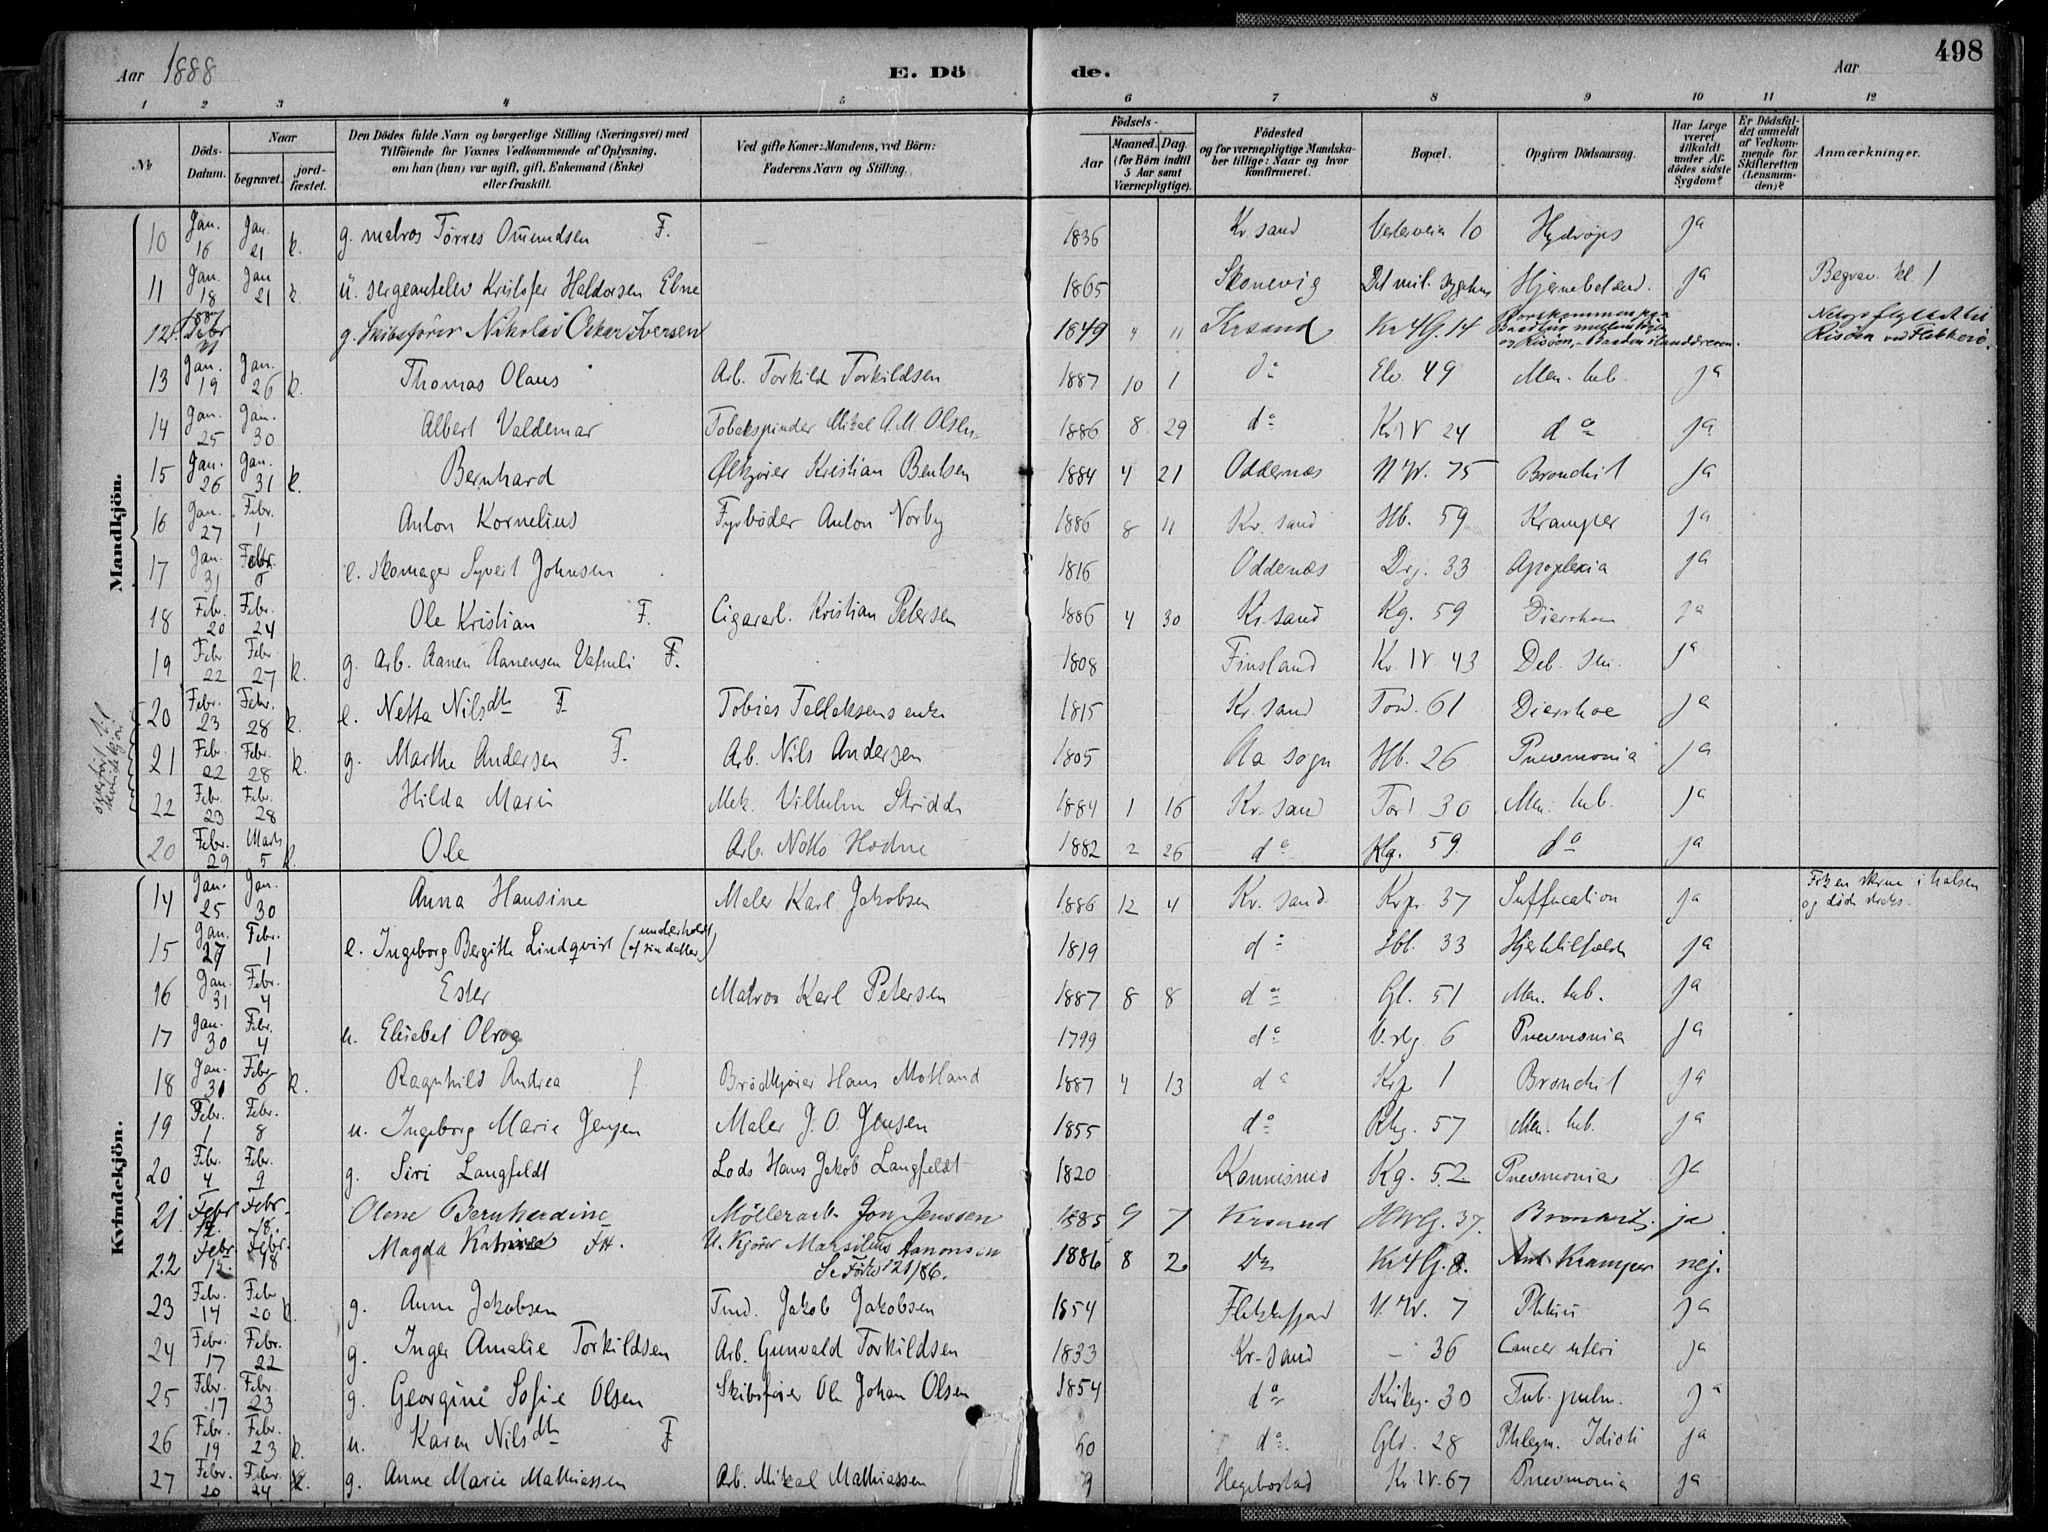 Aar 1888
E. Dö
de.
Aar
498
1 2 3 4 5 6 7 8 9 10 11 12
№
Döds-Datum.
Naar
begravet.
jord-fæstet.
Den Dödes fulde Navn og borgerlige Stilling (Næringsvei) med
Tilföiende for Voxnes Vedkommende af Oplysning,
om han (hun) var ugift, gift, Enkemand (Enke)
eller fraskilt.
Ved gifte Koner: Mandens, ved Börn:
Faderens Navn og Stilling.
Födsels-
Aar
Maaned. Dag.
(for Börn indtil
5 Aar samt
Værnepligtige).
Födested
og for værnepligtige Mandska-
ber tillige: Naar og hvor
konfirmeret.
Bopæl.
Opgiven Dödsaarsag.
Har Læge
været
tilkaldt
under Af-
dödes sidste
Sygdom?
Er Dödsfal-
det anmeldt
af Vedkom-
mende for
Skifteretten
(Lensman-
den)?
Anmærkninger.
Mandkjön.
10 Jan. 16 Jan. 21 k. g. matros Törres Omundsen F. 1836 Kr.sand Vesterveien 10 Hydrops ja
11 Jan. 18 Jan 21 k. u. sergeantelev Kristofer Haldorsen Ebne 1865 Skonevig Det mil. sygehus Hjernebetænd. ja Begrav. kl 1
12 1887 Debr g. Skibsförer Nikolai Oskar Iversen 1849 4 11 Krsand Kr4G. 14
13 Jan. 19 Jan. 26 k. Thomas Olaus Arb. Torkild Torkildsen 1887 10 1 do Elv 49 Men. tub. ja
14 Jan. 25 Jan. 30 Albert Valdemar Tobakspinder Mikal A.M. Olsen 1886 8 29 do Kr.IV 24 do ja
15 Jan. 26 Jan. 31 k. Bernhard Ölkjörer Kristian Bentsen 1884 4 21 Oddernæs 75 Bronchit ja
16 Jan. 27 Febr. 1 Anton Kornelius Fyrböder Anton Norby 1886 8 11 Kr.sand Hb. 59 Kramper ja
17 Jan. 31 Febr. e. skomager Syvert Johnsen 1816 Oddernæs Drg. 33 Apoplexia ja
18 Febr. 20 Febr. 24 Ole Kristian F. Cigararb. Kristian Petersen 1886 4 30 Kr.sand Kg. 59 Diarrhoe ja
19 Febr 22 Febr 27 k. g. Arb. Aanen Aanensen Vatneli F. 1808 Finsland Kr.IV. 43 Deb. sen. ja
overfört til kvindekjön
20 Febr. 23 Febr. 28 k. e. Netta Nilsdtr F Tobias Telleksens enke 1815 Kr.sand Tord. 61 Diarrhoe ja
21 Febr. 22 Febr. 28 k. g. Marthe Andersen F. Arb. Nils Andersen 1805 Aa sogn Hb. 26 Pneumonia ja
22 Febr. 23 Febr. 28 Hilda Marie Mek. Vilhelm 1884 1 16 Kr.sand Tord. 30 Men. tub. ja
20 Febr. 29 Marts 5 k. Ole Arb. Notto Hodne 1882 2 26 do Kg. 59 do ja
Kvindekjön.
14 Jan. 25 Jan. 30 Anna Hansine Maler Karl Jakobsen 1886 12 4 Kr.sand 37 Suffucation ja Fik en skrue i halsen
og döde straks.
15 Jan. 27 Febr. 1 e. Ingeborg Bergitte Lindqvist (underholdt af sin datter) 1819 do 33 Hjertetilfælde ja
16 Jan. 31 Febr. 4 Ester Matros Karl Petersen 1887 8 8 do Gl. 51 Men. tub. ja
17 Jan. 30 Febr. 4 u. Elisabet Olrog 1799 do V.stg. 6 Pneumonia ja
18 Jan. 31 Febr 6 k. Ragnhild Andrea f Brödkjörer Hans Motland 1887 4 13 do 1 Bronchit ja
19 Febr. 1 Febr. 8 u. Ingeborg Marie Jensen Maler J. O. Jensen 1855 do Rhg. 57 Men. tub. ja
20 Febr. 4 Febr. 9 g. Siri Langfeldt Lods Hans Jakob Langfeldt 1820 Kg. 52 Pneumonia ja
21. Febr 12. Febr. 18. Olene Bernhardine Möllerarb. Jon Jenssen 1885 9 7 Krsand 37. ja
22 Febr 12. Febr. 18 Magda FH. Marselius Aanonsen
121/86. 1886 8 2 Do Kr4G. 8. Kramper nej.
23 Febr. 14 Febr 20 k. g. Anne Jakobsen Tmd. Jakob Jakobsen 1854 Flekkefjord 7 Phtisis ja
24 Febr. 17 Febr. 22 g. Inger Amalie Torkildsen Arb. Gunvald Torkildsen 1833 Kr.sand – 36 Cancer uteri ja
25 Febr. 17 Febr. 23 g. Georgine Sofie Olsen Skibsförer Ole Johan Olsen 1854 do Kirkeg. 30 Tub. pulm. ja
26 Febr. 19 Febr. 23 k. u. Karen Nilsdtr F 60 do. Gld. 28 Phlegm. Idioti ja
27 Febr. 20 Febr. 24 k. g. Anne Marie Mathiassen Arb. Mikal Mathiassen 9 Hegebostad Kr.IV. 67 Pneumonia ja